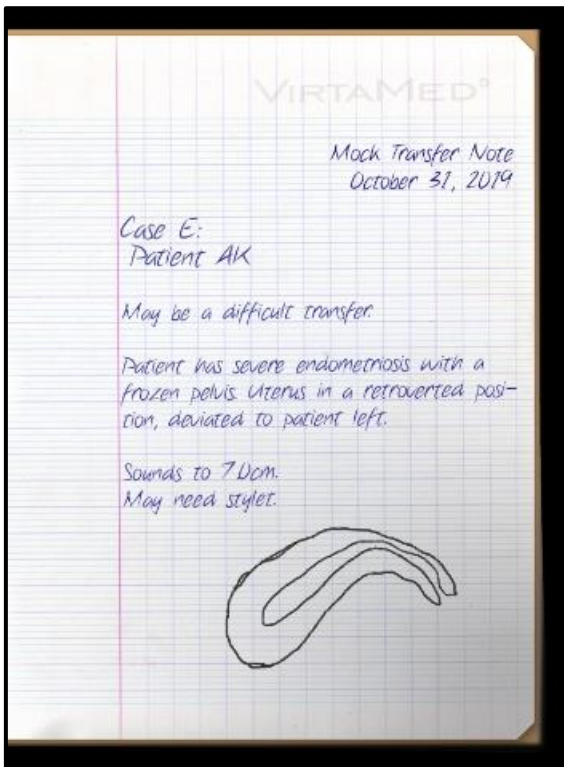 VIRTAMED
Mock Transfer Note
October 31, 2019
Case E:
Patient AK
May be a difficult transfer.
Patient has severe endometriosis with a
frozen pelvis. Uterus in a retroverted posi-
tion, deviated to patient left.
Sounds to 7.0cm.
May need stylet.